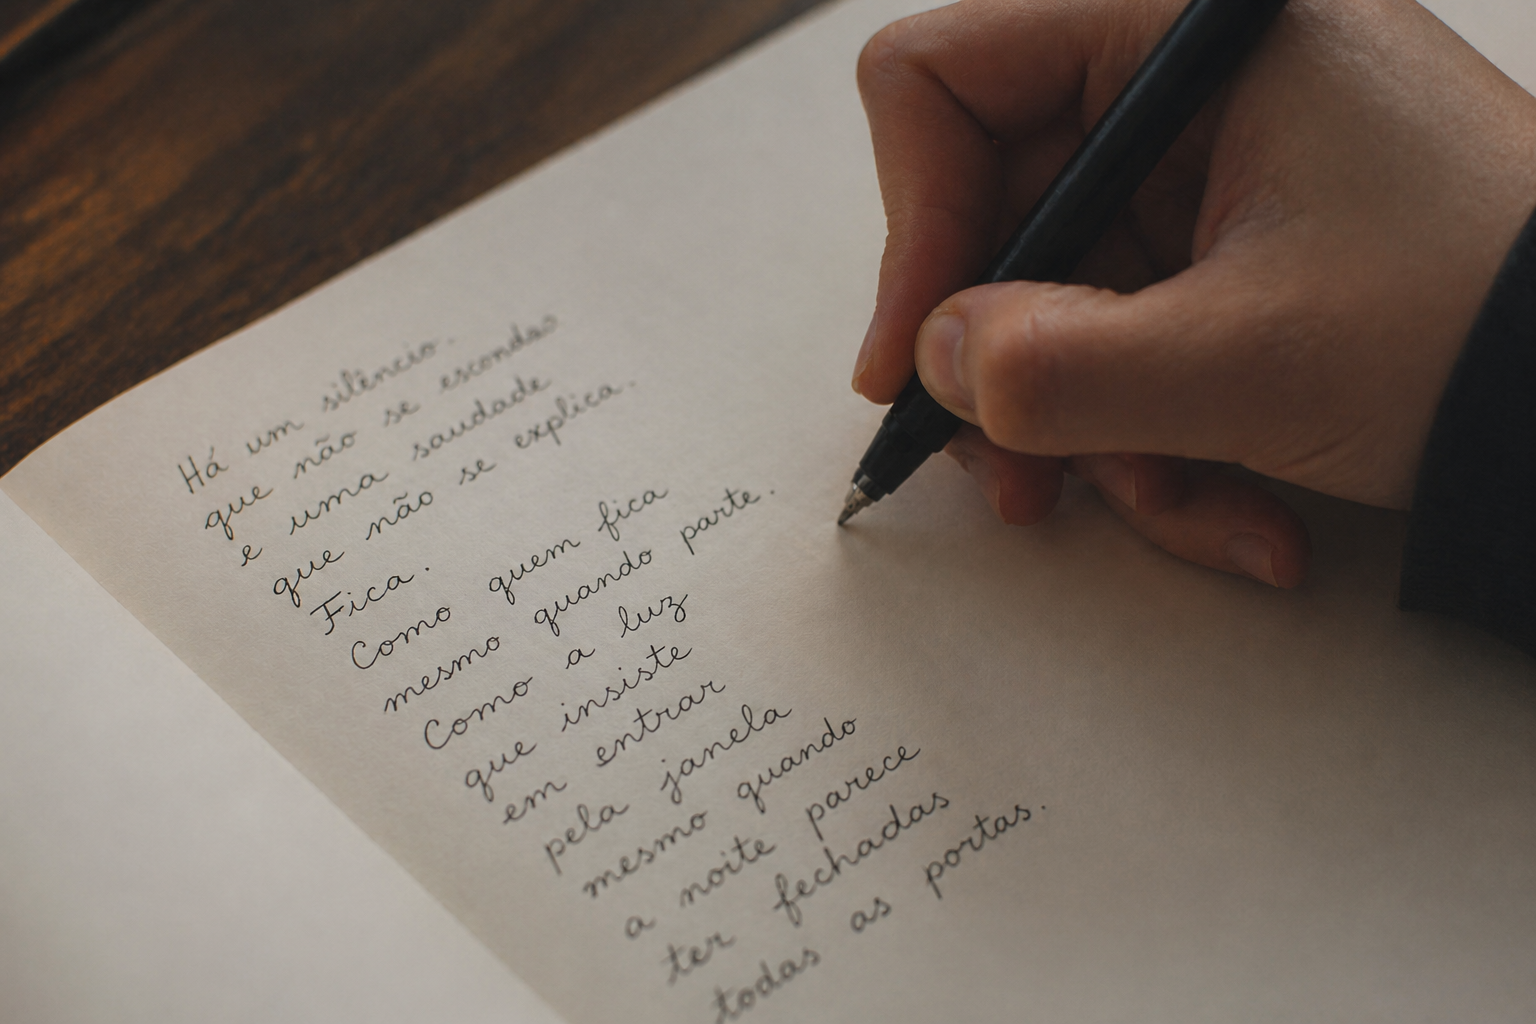 Há um silêncio.
que não se escondas
e uma saudade
que não se explica.
Fica.
Como quem fica
mesmo quando parte.
Como a luz
que insiste
em entrar
pela janela
mesmo quando
a noite parece
ter fechadas
todas as portas.